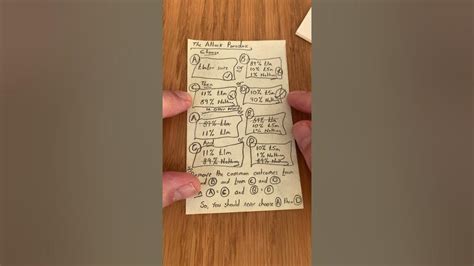 The Allais Paradox
Choose
A £1m for sure or B 89% £1m
10% £5m
1% Nothing
Then
C 11% £1m
89% Nothing or D 10% £5m
90% Nothing
In other words
A 89% £1m
11% £1m B 89% £1m
10% £5m
1% Nothing
And
C 11% £1m
89% Nothing D 10% £5m
1% Nothing
89% Nothing
Remove the common outcomes from
and B and from C and D
A = C and B = D
So, you should never choose A then D